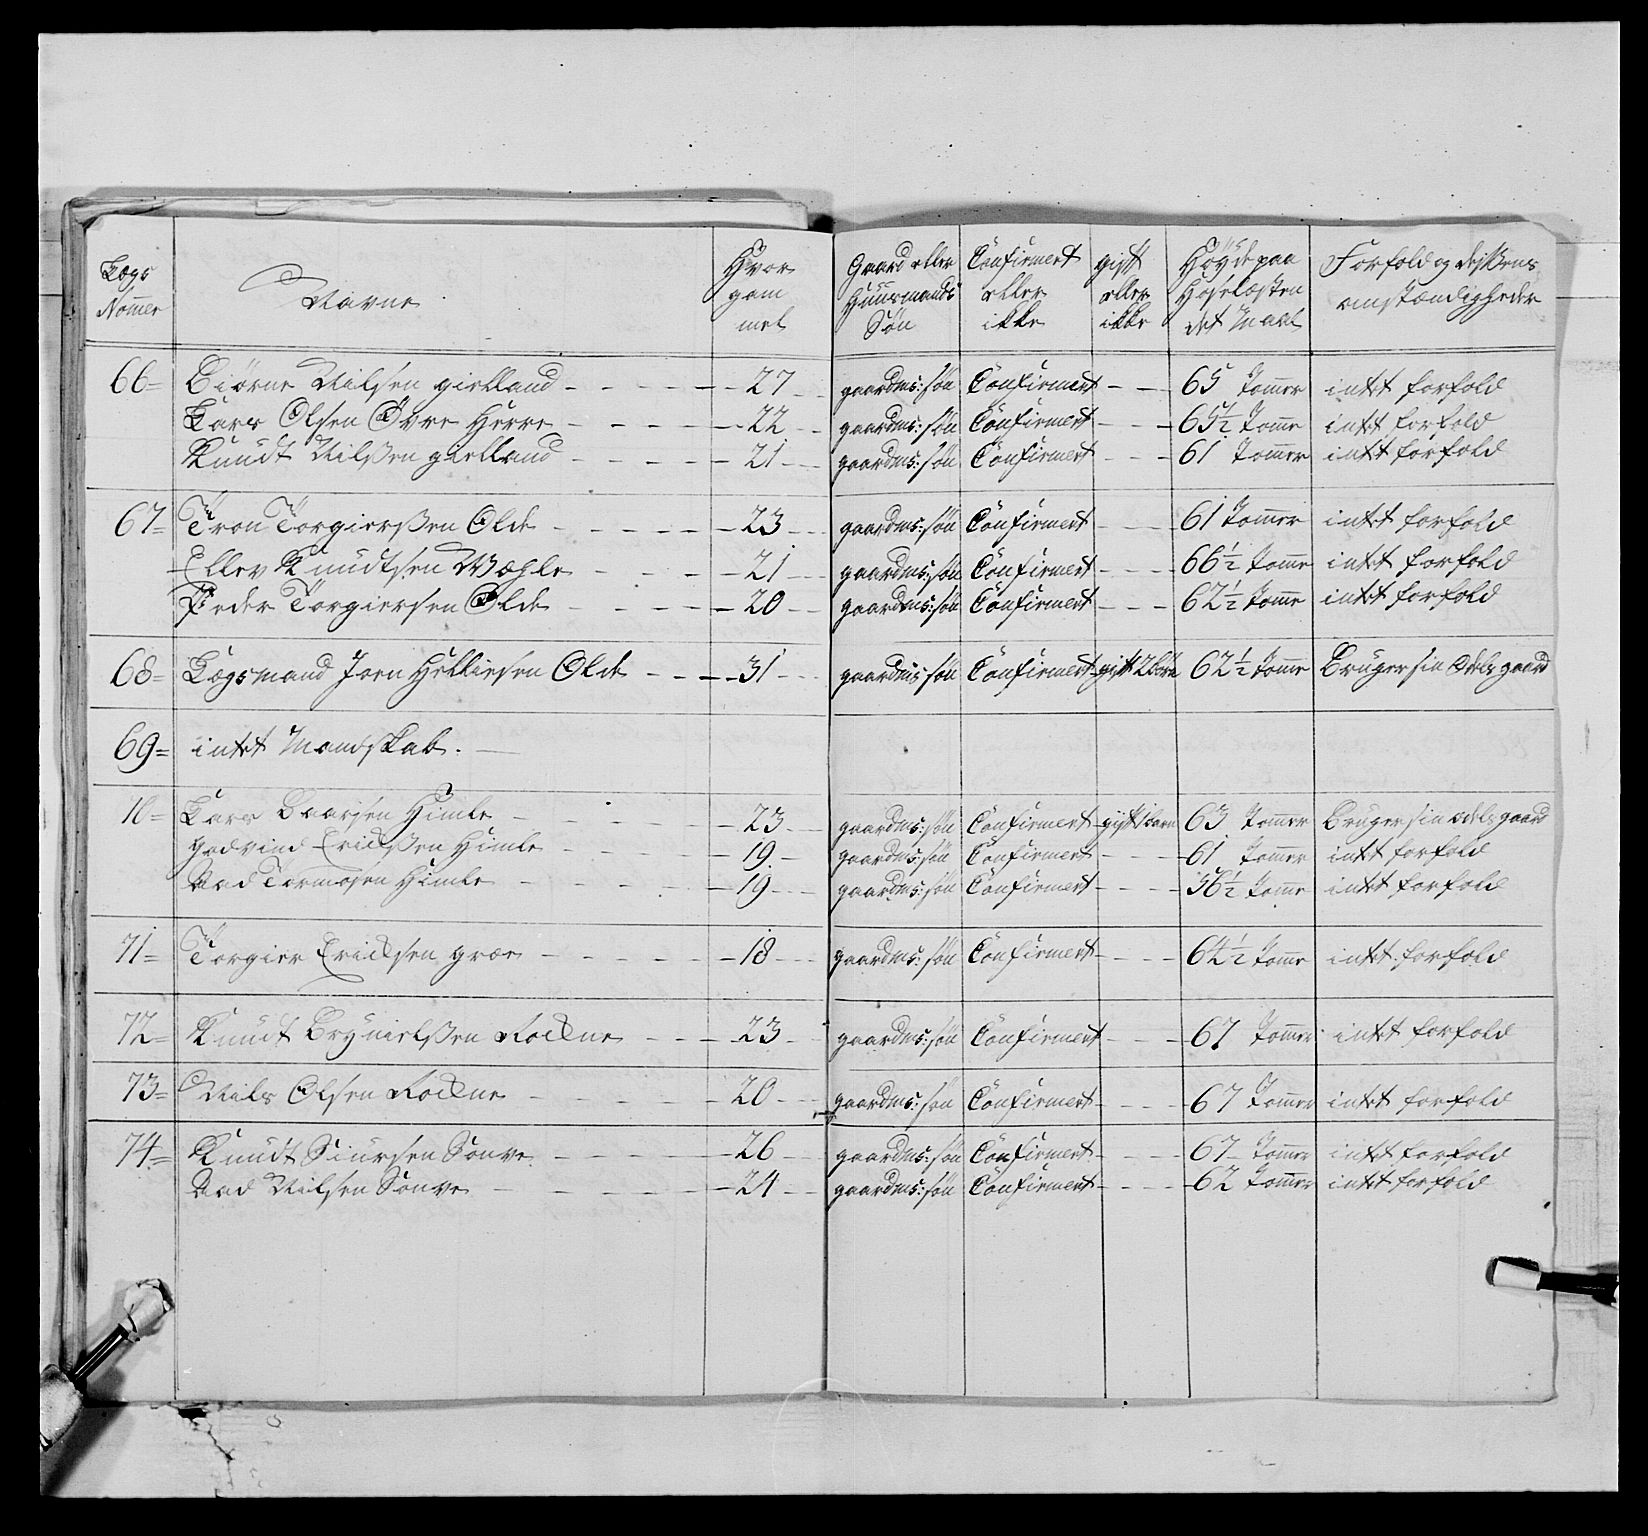 Lægs Nomer | Navne | Hvor gam mel | Gaard eller Huusmands Søn | Confirmert eller ikke | gift eller ikke | Høyde paa Hoselæsten det Maal | Forfold og dessens omstændigheder
66 = Biørne Nilsen gielland - - - - 27 - gaardms: søn Confirmert - - 65 Tommer intet forfold
Lars Olsen Øvre Herre - - - - 22 - gaardms: søn Confirmert - - 65½ Tomme intet forfold
Knudt Nilssen gielland - - - - 21 - gaardms: søn Confirmert - - 61 Tommer intet forfold
67 = Tron Torgierssen Olde - - - - 23 - gaardms: søn Confirmert - - 61 Tommer intet forfold
Ellev Knudtsen Wæhle - - - - 21 - gaardms: søn Confirmert - - 66½ Tomme intet forfold
Peder Torgiersen Olde - - - - 20 - gaardms: søn Confirmert - - 62½ Tomme intet forfold
68 = Lægsmand Joen Helliesen Olde - - - 31 - gaardms: søn Confirmert gift 2 børn 62½ Tomme Bruger sin Odels gaard
69 = intet Mandskab.
10 = Lars Baarsen Himle - - - - 23 - gaardms: søn Confirmert gift 1 barn 63 Tommer Bruger sin odels gaard
Godvind Erickssen Himle - - - 19 - gaardms: søn Confirmert - - 61 Tommer intet forfold
Aad Tormosen Himle - - - - 19 - gaardms: søn Confirmert - - 56½ Tomme intet forfold
71 = Torgier Ericksen græe - - - - 18 - gaardms: søn Confirmert - - 64½ Tomme intet forfold
72 = Knudt Brynielssen Rockne - - - 23 - gaardms: søn Confirmert - - 67 Tommer intet forfold
73 = Nils Olsen Rockne - - - - 20 - gaardms: søn Confirmert - - 67 Tommer intet forfold
74 = Knudt Siursen Sonve - - - - 26 - gaardms: søn Confirmert - - 67 Tommer intet forfold
Aad Nilsen Sonve - - - - 24 - gaardms: søn Confirmert - - 62 Tommer intet forfold